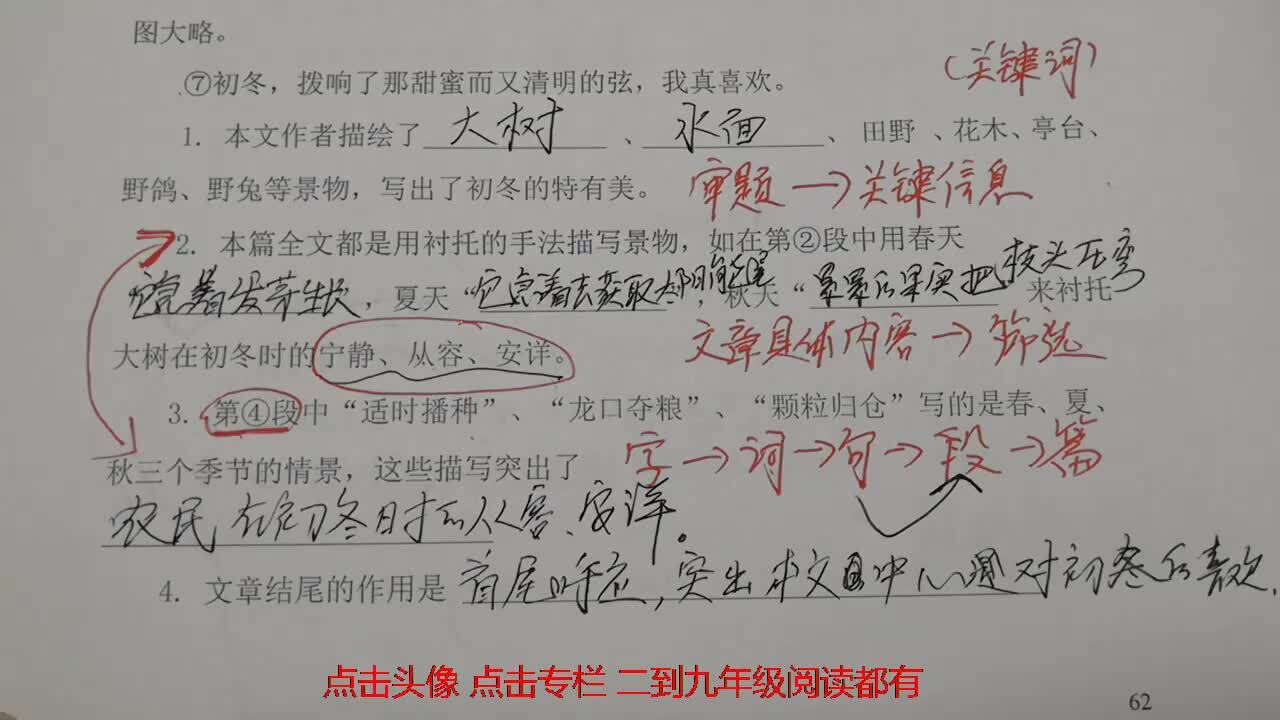 图大略。
⑦初冬，拨响了那甜蜜而又清明的弦，我真喜欢。
（关键词）
1. 本文作者描绘了 大树 、 水面 、 田野 、花木、亭台、
野鸽、野兔等景物，写出了初冬的特有美。
审题→关键信息
2. 本篇全文都是用衬托的手法描写景物，如在第②段中用春天
它急着发芽生长 ，夏天“它急着去获取太阳的 ，秋天“累累的果实把枝头压弯 来衬托
大树在初冬时的宁静、从容、安详。
文章具体内容→筛选
3. 第④段中“适时播种”、“龙口夺粮”、“颗粒归仓”写的是春、夏、
秋三个季节的情景，这些描写突出了
字→词→句→段→篇
农民在初冬时的从容、安详。
4. 文章结尾的作用是 首尾呼应，突出本文的中心 对初冬的喜欢.
点击头像 点击专栏 二到九年级阅读都有
62